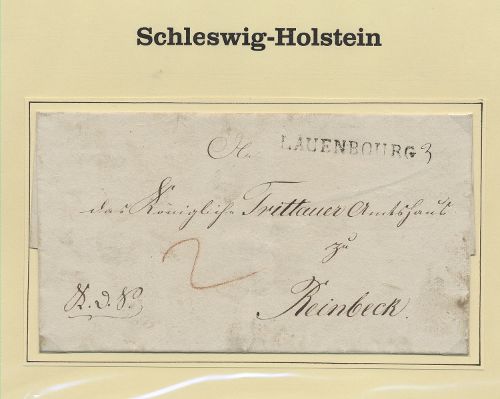 Schleswig-Holstein
LAUENBOURG 3
An
das Königliche Trittauer Amtshaus
zu
2
Reinbeck.
K. d. S.